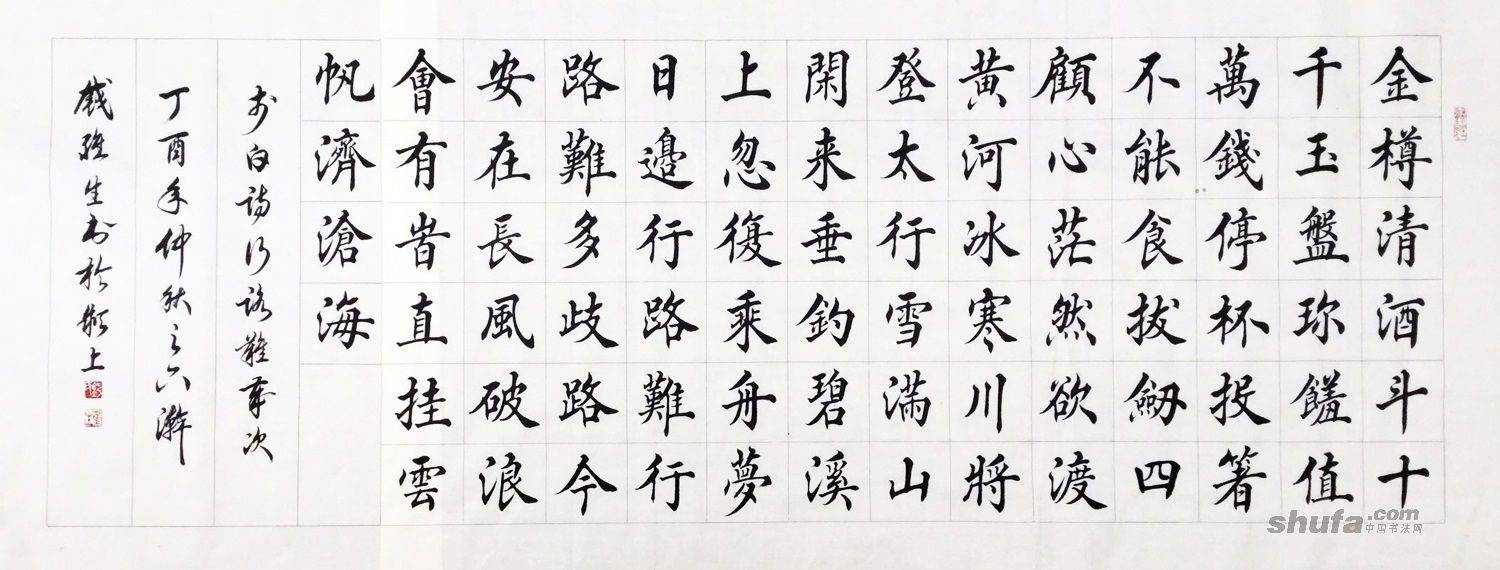 金樽清酒斗十
千玉盤珍饈值
萬錢停杯投箸
不能食拔劒四
顧心茫然欲渡
黃河冰寒川將
登太行雪滿山
閑来垂釣碧溪
上忽復乘舟夢
日邊行路難行
路難多歧路今
安在長風破浪
會有旹直挂雲
帆濟滄海
李白詩行路難
丁酉年仲秋之六澣
生书於上
shufa.com
中国书法网